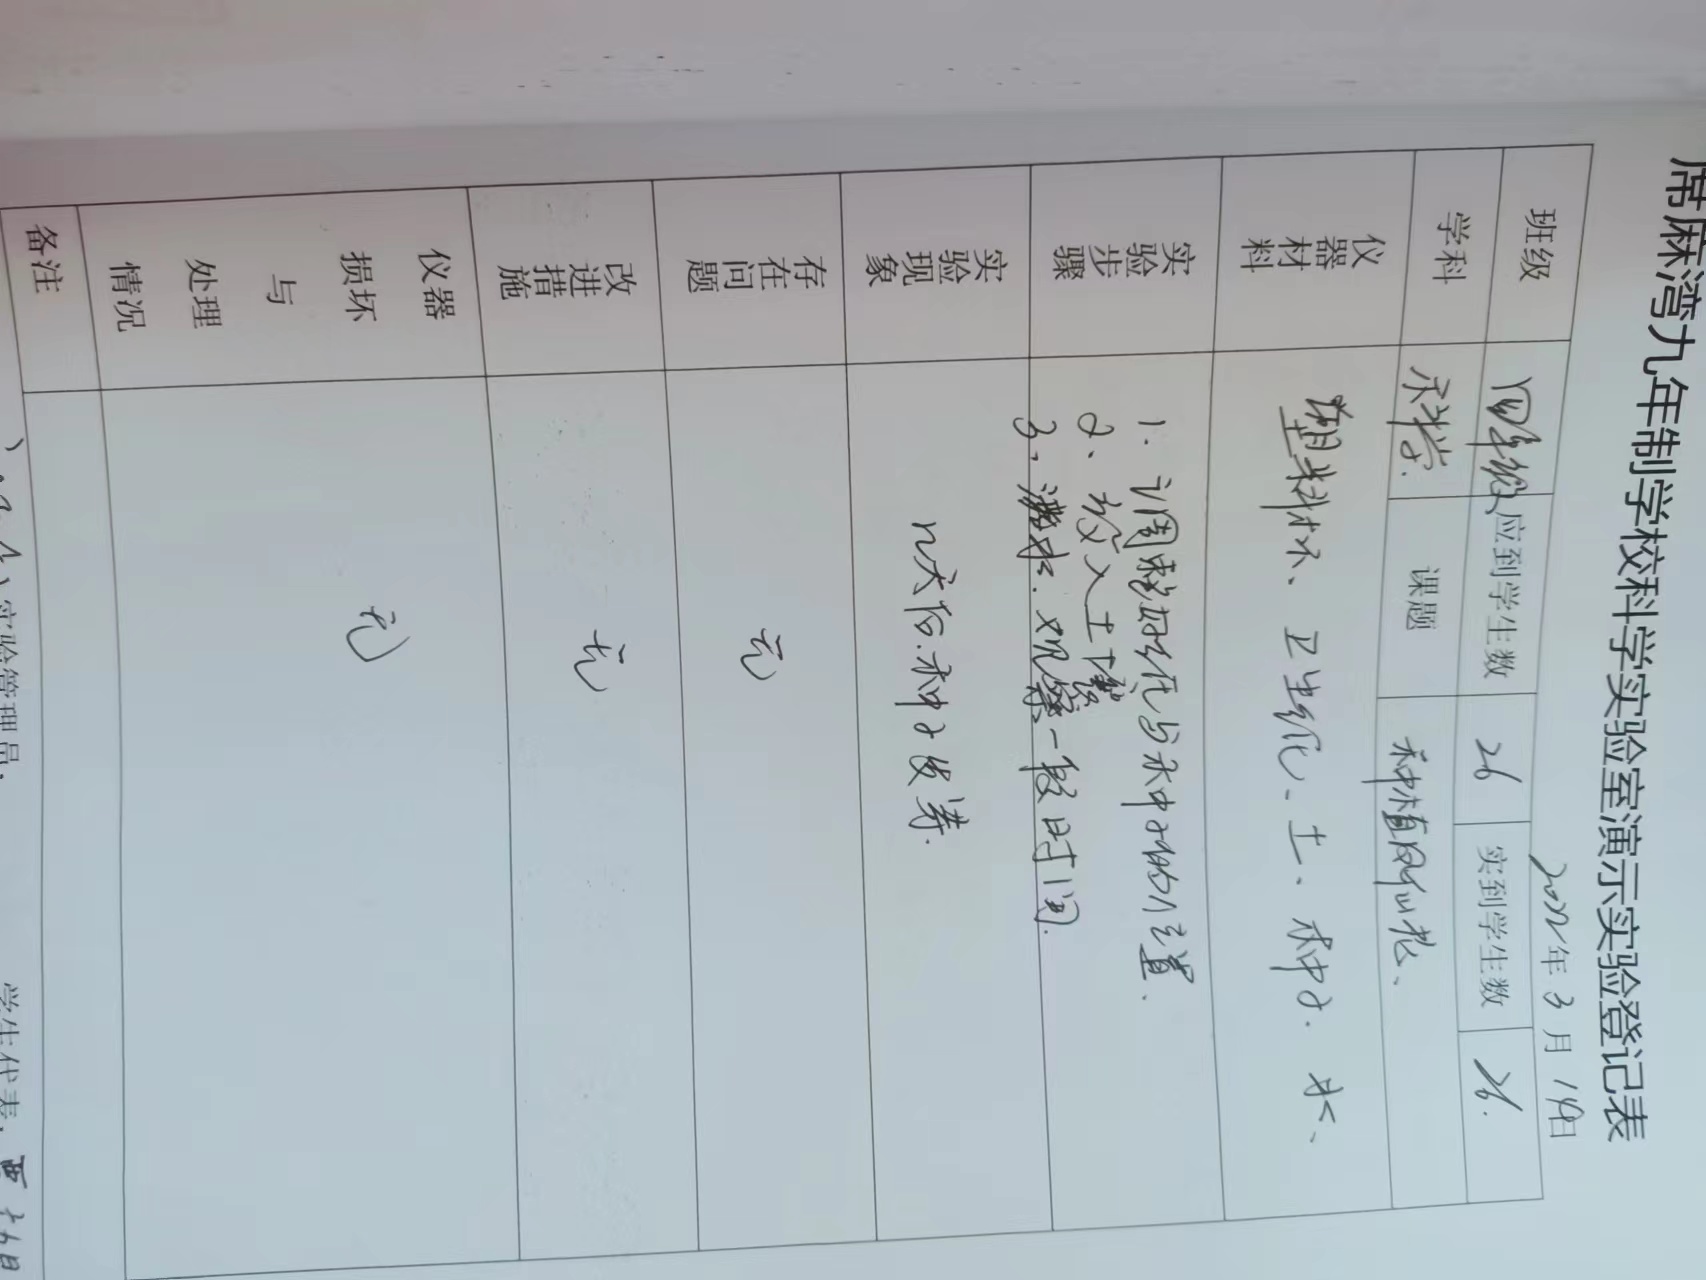 席麻湾九年制学校科学实验室演示实验登记表
2022年3月14日
班级 四年级 应到学生数 26 实到学生数 26.
学科 科学. 课题 种植凤仙花、
仪器材料 塑料杯、卫生纸、土、种子. 水、
实验步骤 1. 调整好纸与种子的位置.
2、放入土壤
3、浇水. 观察一段时间.
实验现象 n天后.种子发芽.
存在问题 无
改进措施 无
仪器损坏与处理情况 无
备注
实验管理员:
学生代表: